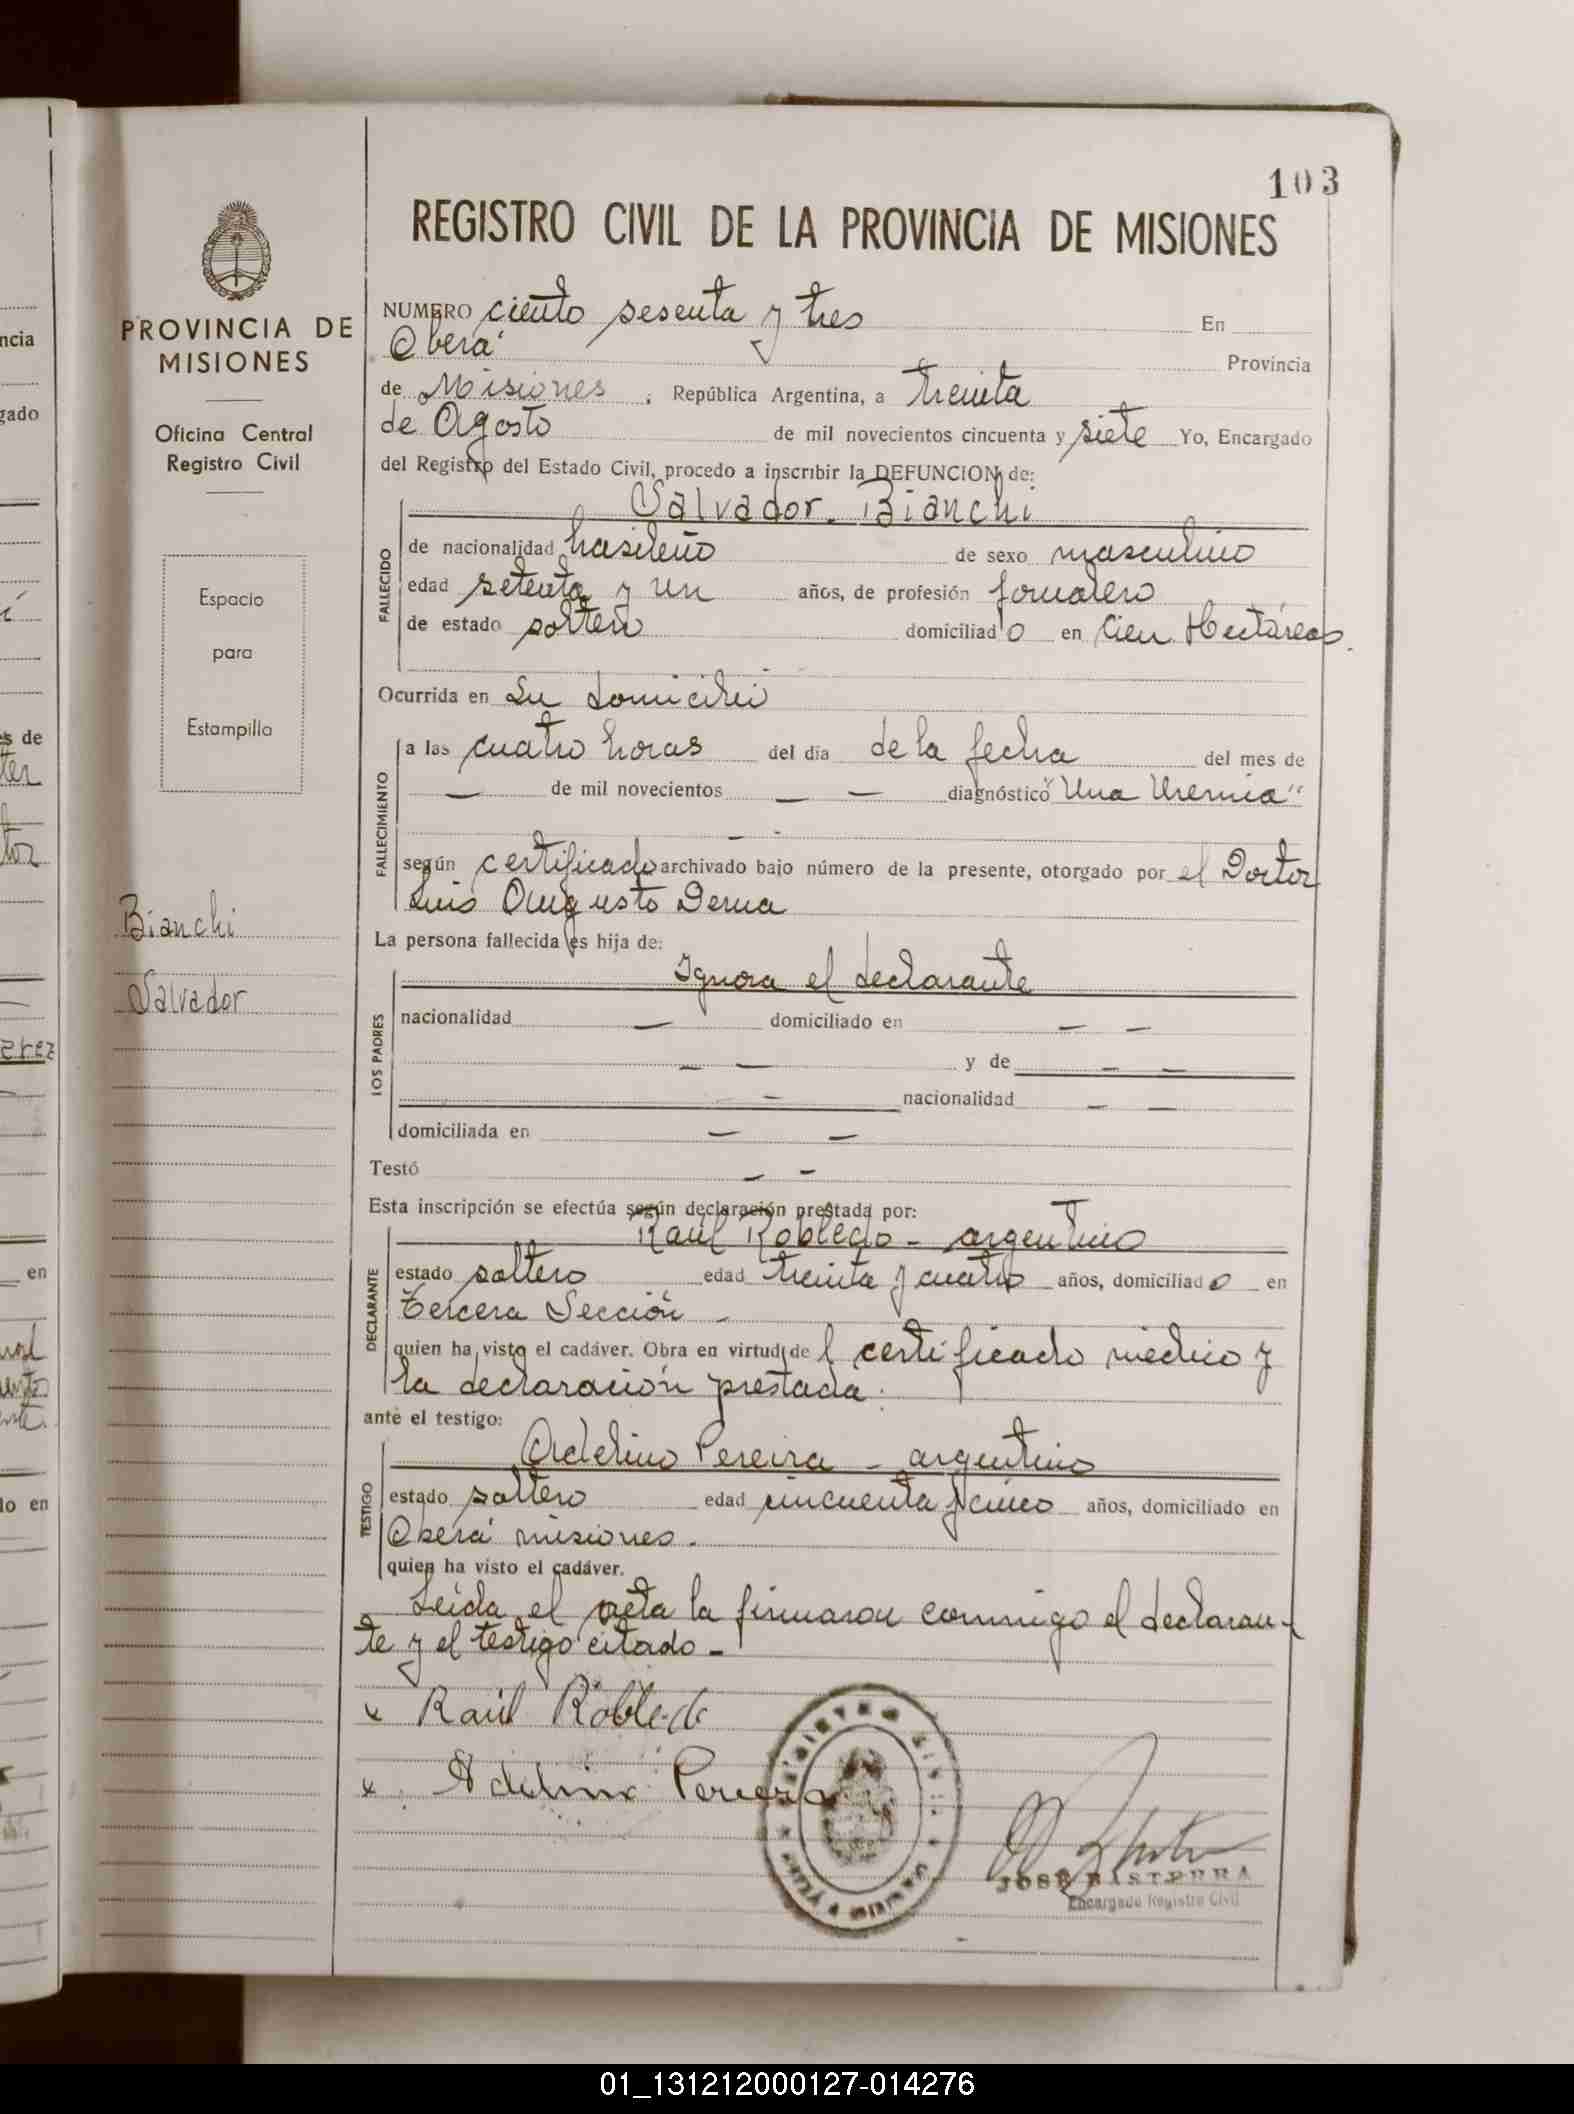 103
REGISTRO CIVIL DE LA PROVINCIA DE MISIONES
PROVINCIA DE
MISIONES
Oficina Central
Registro Civil
Espacio
para
Estampilla
Bianchi
Salvador
NUMERO ciento sesenta y tres En
Oberá Provincia
de Misiones , República Argentina, a treinta
de Agosto de mil novecientos cincuenta y siete Yo, Encargado
del Registro del Estado Civil, procedo a inscribir la DEFUNCION de:
Salvador Bianchi
FALLECIDO
de nacionalidad brasileño de sexo masculino
edad setenta y un años, de profesión jornalero
de estado soltero domiciliado en Cien Hectáreas.
Ocurrida en su domicilio
FALLECIMIENTO
a las cuatro horas del día de la fecha del mes de
— de mil novecientos — — diagnóstico "Una Uremia"
según certificado archivado bajo número de la presente, otorgado por el Doctor
Luis Augusto Derna
La persona fallecida es hija de:
Ignora el declarante
LOS PADRES
nacionalidad — domiciliado en — —
— — y de — —
— nacionalidad — —
domiciliada en — —
Testó — -
Esta inscripción se efectúa según declaración prestada por:
Raúl Robledo - argentino
DECLARANTE
estado soltero edad treinta y cuatro años, domiciliado en
Tercera Sección -
quien ha visto el cadáver. Obra en virtud del certificado médico y
la declaración prestada.
ante el testigo:
Adelino Pereira - argentino
TESTIGO
estado soltero edad cincuenta y cinco años, domiciliado en
Oberá misiones.
quien ha visto el cadáver.
Leída el acta la firmaron conmigo el declaran-
te y el testigo citado -
x Raúl Robledo
x Adelino Pereira
JOSÉ BASTERRA
Encargado Registro Civil
01_131212000127-014276